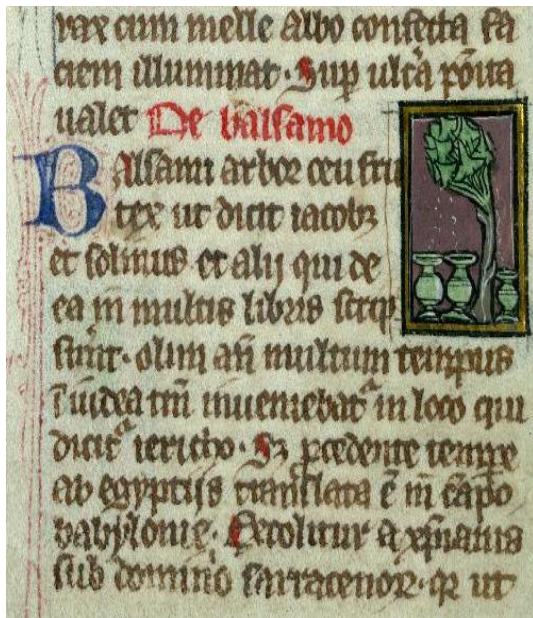 rax cum melle albo confecta fa
ciem illuminat. Sup ulc̃a põita
ualet De balsamo
Balsami arbor ceu fru
tex ut dicit iacobꝫ
et solinus et alij qui de
ea in multis libris scrip
sunt. olim añ multum tempus
ĩ iudea tm̃ inueniebat᷑ in loco qui
dicit᷑ iericho. Sꝫ p̃cedente tempe
ab egyptijs translata ẽ in cãpo
babylonie. Et colitur a xp̃ianis
sub domino sarracenoꝝ. qꝛ ut